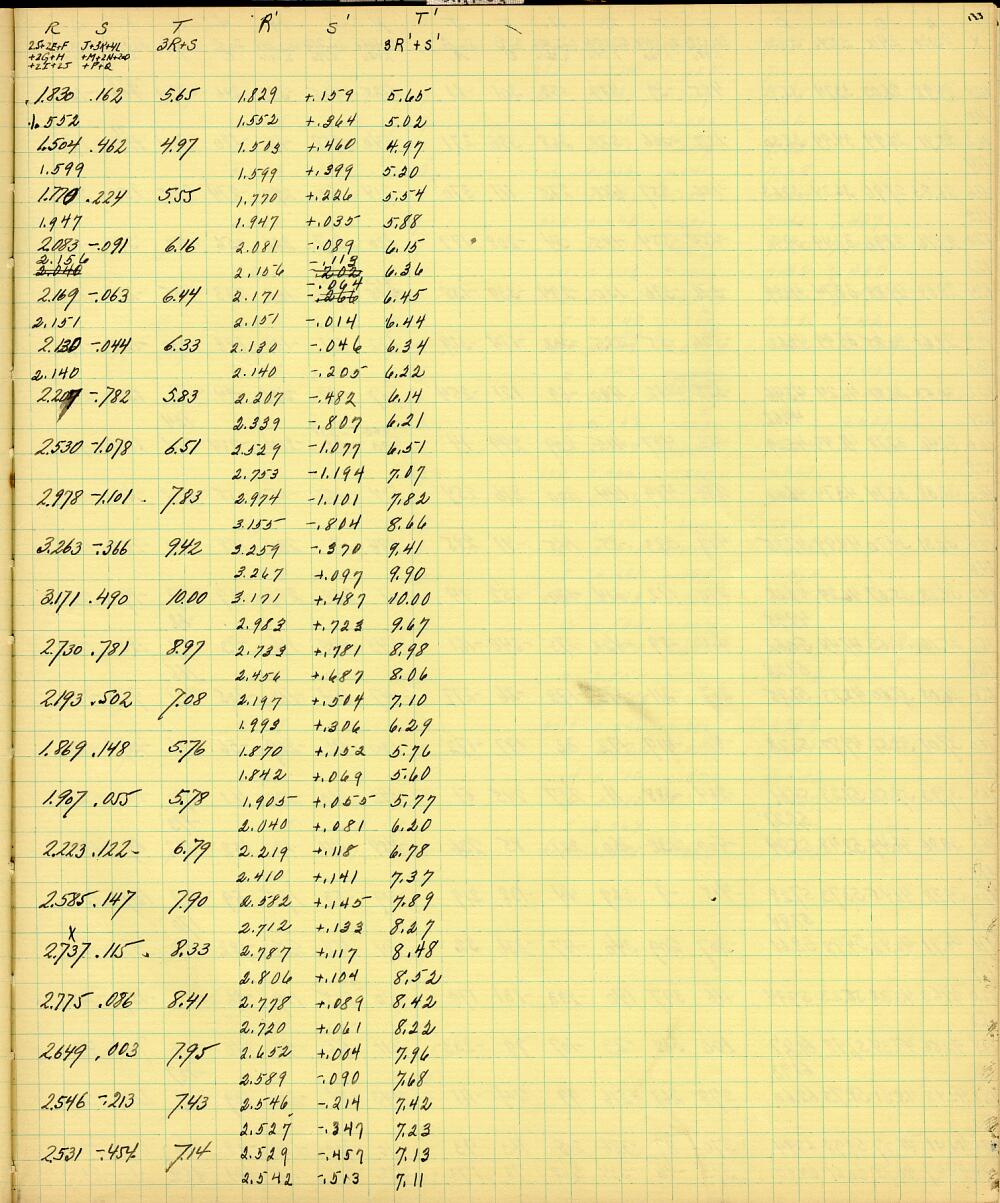 133
R S T R' S' T'
2S+2E+F J+3K+4L 3R+S 3R'+S'
+2G+H +M+2N+2O
+2I+2J +P+Q
1.830 .162 5.65 1.829 +.159 5.65
1.552 1.552 +.364 5.02
1.504 .462 4.97 1.503 +.460 4.97
1.599 1.599 +.399 5.20
1.770 .224 5.55 1.770 +.226 5.54
1.947 1.947 +.035 5.88
2.083 -.091 6.16 2.081 -.089 6.15
2.156 -.113
2.040 2.156 -.202 6.36
-.064
2.169 -.063 6.44 2.171 -.266 6.45
2.151 2.151 -.014 6.44
2.130 -.044 6.33 2.130 -.046 6.34
2.140 2.140 -.205 6.22
2.207 -.782 5.83 2.207 -.482 6.14
2.339 -.807 6.21
2.530 -1.078 6.51 2.529 -1.077 6.51
2.753 -1.194 7.07
2.978 -1.101 7.83 2.974 -1.101 7.82
3.155 -.804 8.66
3.263 -.366 9.42 3.259 -.370 9.41
3.267 +.097 9.90
3.171 .490 10.00 3.171 +.487 10.00
2.983 +.723 9.67
2.730 .781 8.97 2.733 +.781 8.98
2.456 +.687 8.06
2.193 .502 7.08 2.197 +.504 7.10
1.993 +.306 6.29
1.869 .148 5.76 1.870 +.152 5.76
1.842 +.069 5.60
1.907 .055 5.78 1.905 +.055 5.77
2.040 +.081 6.20
2.223 .122- 6.79 2.219 +.118 6.78
2.410 +.141 7.37
2.585 .147 7.90 2.582 +.145 7.89
2.712 +.133 8.27
x
2.737 .115 8.33 2.787 +.117 8.48
2.806 +.104 8.52
2.775 .086 8.41 2.778 +.089 8.42
2.720 +.061 8.22
2.649 .003 7.95 2.652 +.004 7.96
2.589 -.090 7.68
2.546 -.213 7.43 2.546 -.214 7.42
2.527 -.347 7.23
2.531 -.454 7.14 2.529 -.457 7.13
2.542 -.513 7.11